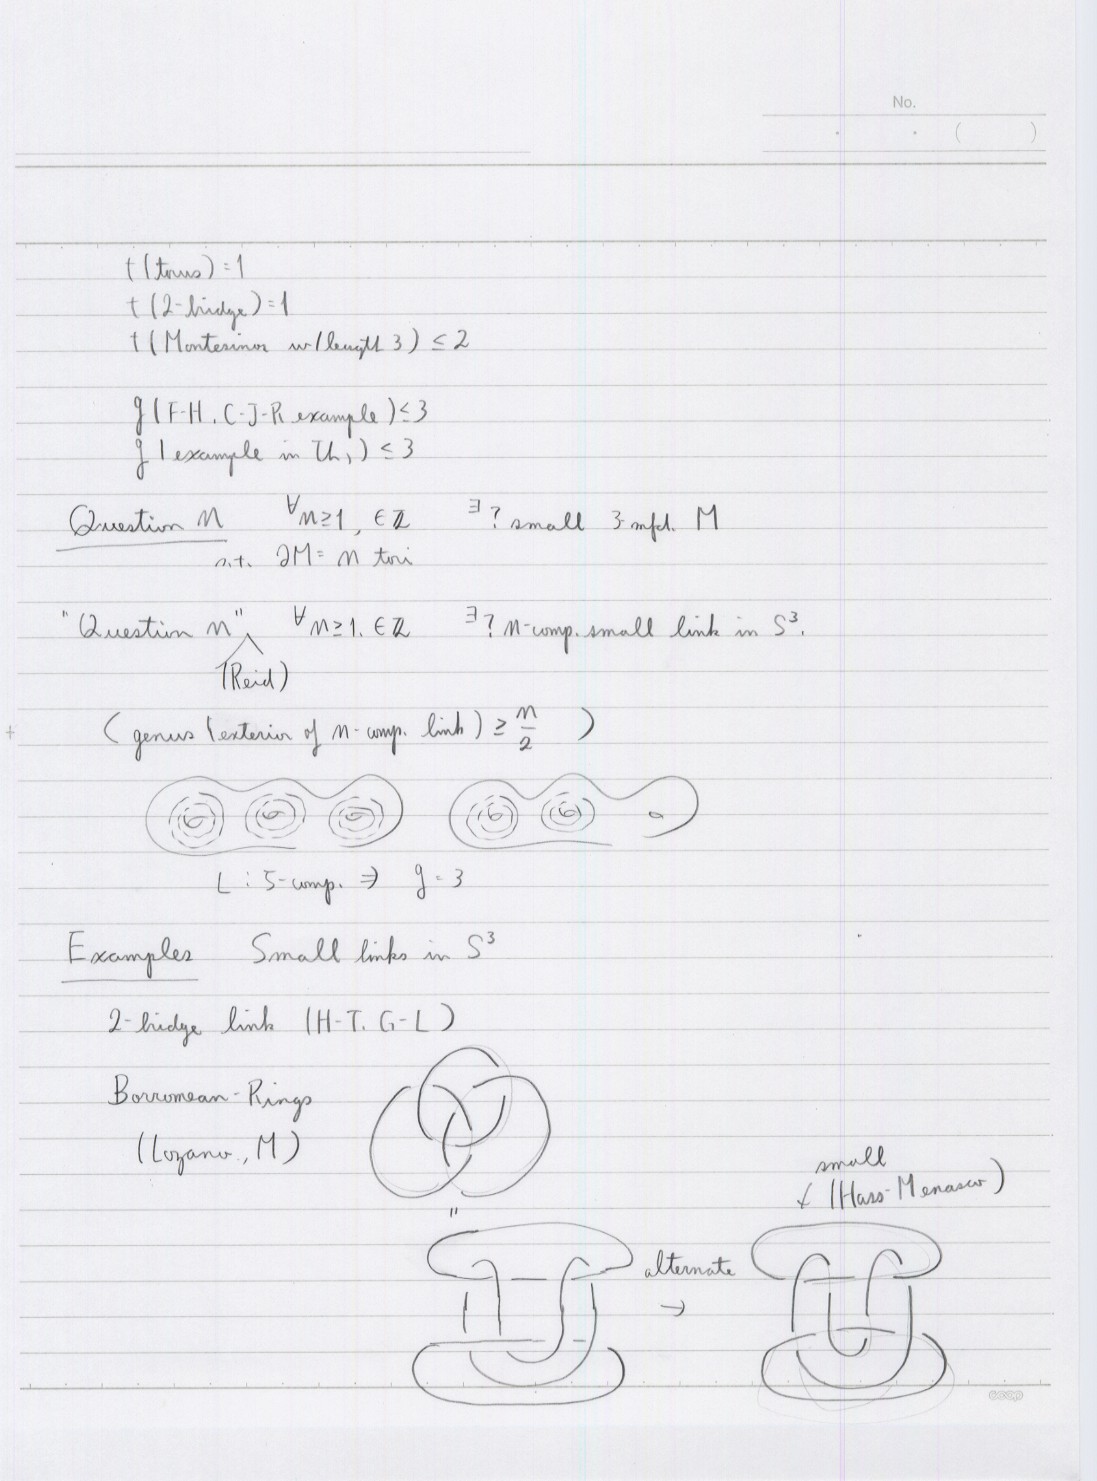 No.
( )
t(torus)=1
t(2-bridge)=1
t(Montesinos w/length 3) ≤ 2
g(F-H, C-J-R example) ≤ 3
g(example in Th,) ≤ 3
Question n ∀n≥1, ∈ℤ ∃? small 3-mfd. M
s.t. ∂M = n tori
"Question n" ∀n≥1, ∈ℤ ∃? n-comp. small link in S³.
(Reid)
(genus (exterior of n-comp. link) ≥ n/2 )
L : 5-comp. ⇒ g = 3
Examples Small links in S³
2-bridge link (H-T, G-L)
Borromean-Rings
(Lozano, M)
small
(Hass-Menasco)
"
alternate
→
coop